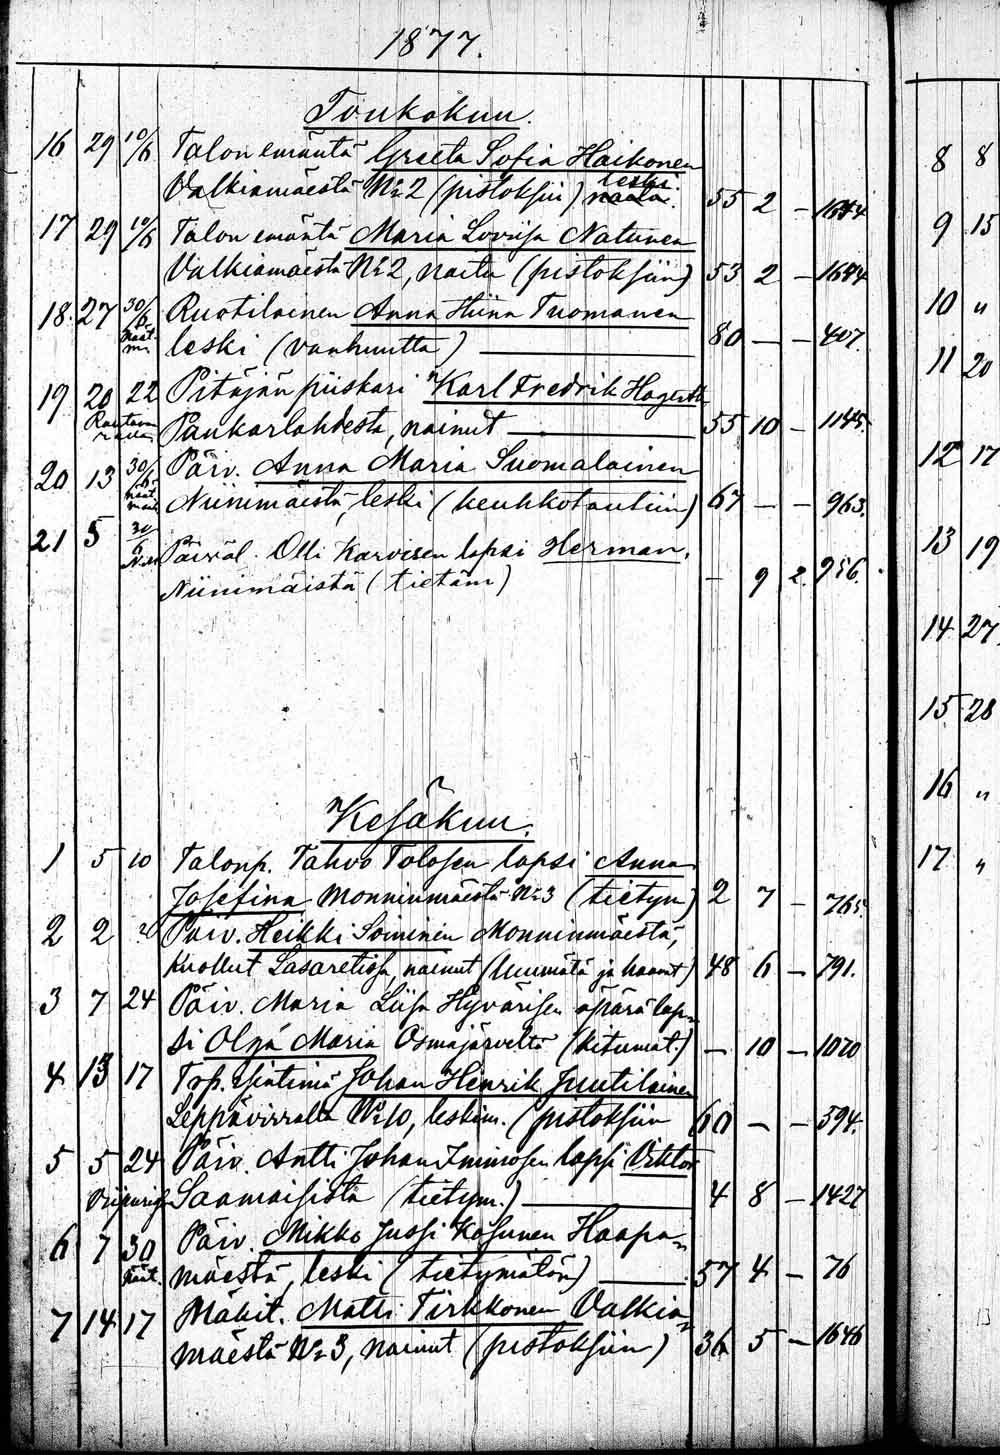 1877.
Toukokuu.
16 29 10/6 Talon emäntä Greeta Sofia Haikonen
Valkiamäestä No 2 (pistoksiin) leski. naitu. 55 2 – 1644
17 29 10/6 Talon emäntä Maria Lovisa Natunen
Valkiamäestä No 2, naitu (pistoksiin) 53 2 – 1644
18. 27 30/6 Ruotilainen Anna Stiina Tuomanen
leski (vanhuutta) 80 – – 407.
19 20 22 Pitäjän piiskari Karl Fredrik
Paukarlahdesta, nainut 55 10 – 1145.
20 13 30/6 Päiv. Anna Maria Suomalainen
Niinimäistä, leski (keuhkotautiin) 67 – – 963.
21 5 30/6 Päiväl. Olli Karvosen lapsi Herman,
Niinimäistä (tietäm) – 9 2. 956.
Kesäkuu.
1 5 10 Talonp. Tahvo Tolosen lapsi Anna
Josefina Monninmäestä No 3 (tietym) 2 7 – 765.
2 2 Päiv. Heikki Soininen Monninmäestä,
Kuollut Lasaretissa, nainut (kuumätä ja haavat) 48 6 – 791.
3 7 24 Päiv. Maria Liisa Hyvärisen äpärä lap-
si Olga Maria Osmajärveltä (kitumat.) – 10 – 1070
4 13 17 Trp. Johan Henrik Juutilainen
Leppävirralta No 10, leskim. (pistoksiin 60 – – 594.
5 5 24 Päiv. Antti Johan Immosen lapsi Viktor
Saamaisista (tietym.) 4 8 – 1427
6 7 30 Päiv. Mikko Jussi Kosunen Haapa-
mäestä, leski (tietymätön) 57 4 – 76
7 14 17 Mäkit. Matti Tirkkonen Valkia-
mäestä No 3, nainut (pistoksiin) 36 5 – 1646
8 8
9 15
10 "
11 20
12 17
13 19
14 27
15 28
16 "
17 "